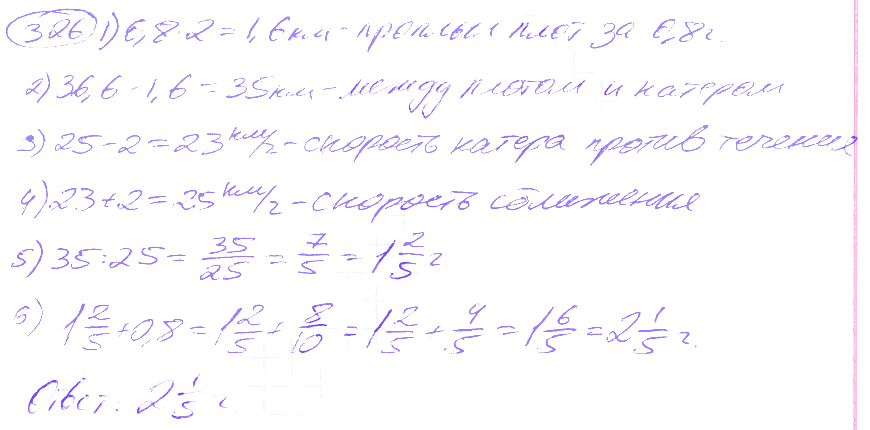 326 1) 0,8·2=1,6км-проплыл плот за 0,8г.
2) 36,6-1,6=35км-между плотом и катером
3) 25-2=23км/г-скорость катера против течения
4) 23+2=25км/г-скорость сближения
5) 35:25=35/25=7/5=1 2/5 г
6) 1 2/5+0,8=1 2/5+8/10=1 2/5+4/5=1 6/5=2 1/5 г.
Ответ: 2 1/5 г.